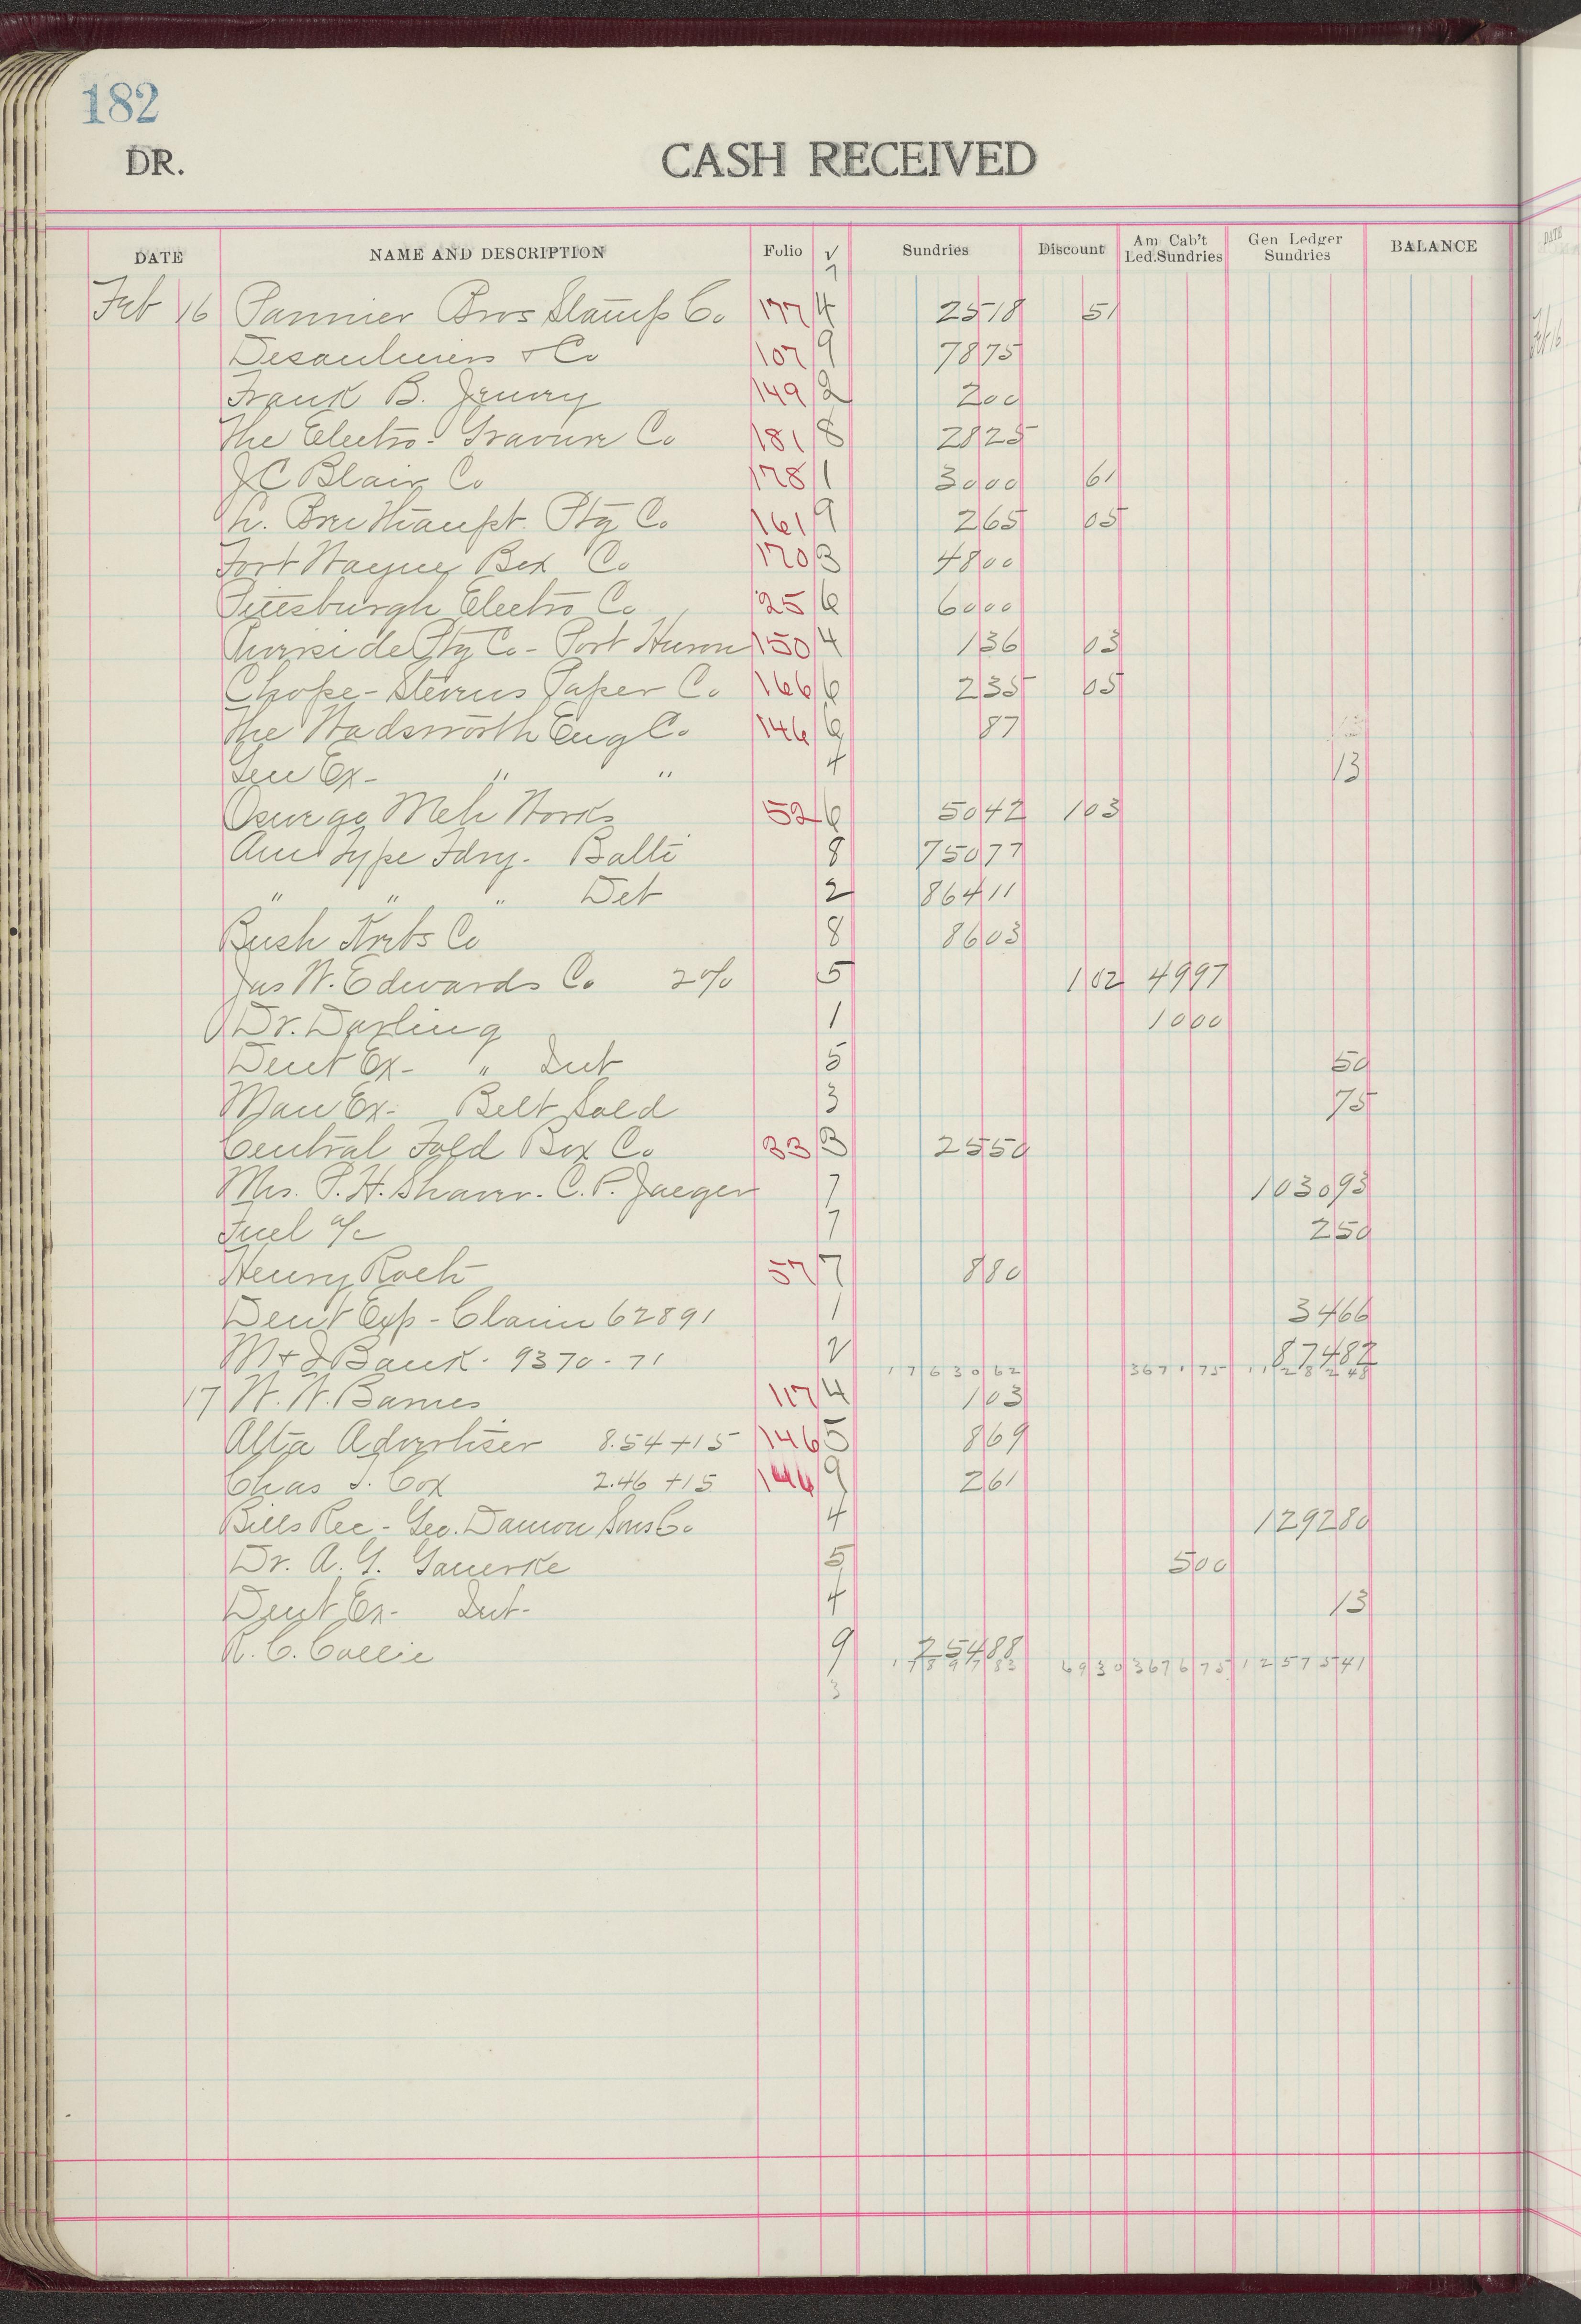 182
DR. CASH RECEIVED
DATE NAME AND DESCRIPTION Folio √ Sundries Discount Am Cab't Led. Sundries Gen Ledger Sundries BALANCE
7
Feb 16 Pannier Bros Stamp Co 177 4 25 18 51
Desaulniers & Co 107 9 78 75
Frank B. Jenvry 149 2 2 00
The Electro-Gravure Co 181 8 28 25
J C Blair Co 178 1 30 00 61
L. Breithaupt Ptg Co 161 9 2 65 05
Fort Wayne Box Co 170 3 48 00
Pittsburgh Electro Co 25 6 60 00
Riverside Ptg Co - Port Huron 150 4 1 36 03
Chope-Stevens Paper Co 166 6 2 35 05
The Wadsworth Eng Co 146 6 87
Gen Ex - " " 4 13
Oswego Mch Works 52 6 50 42 1 03
Am Type Fdry. Balti 8 750 77
" " " Det 2 864 11
Bush Krebs Co 8 86 03
Jas W. Edwards Co 2% 5 1 02 49 97
Dr. Darling 1 10 00
Dent Ex - " Int 5 50
Man Ex - Belt Sold 3 75
Central Fold Box Co 33 3 25 50
Mrs. P. H. Shaver. C. P. Jaeger 7 1030 93
Fuel a/c 7 2 50
Henry Roeh 57 7 8 80
Dent Exp - Claim 62891 1 34 66
M & I Bank - 9370 - 71 2 874 82
17630 62 3671 75 11282 48
17 W. W. Barnes 117 4 1 03
Alta Advertiser 8.54 + 15 146 5 8 69
Chas I. Cox 2.46 + 15 146 9 2 61
Bills Rec - Geo. Damon Sons Co 4 1292 80
Dr. A. G. Gauerke 5 5 00
Dent Ex - Int - 4 13
R. C. Collie 9 254 88
17897 83 69 30 3676 75 12575 41
3
DATE
Feb 16